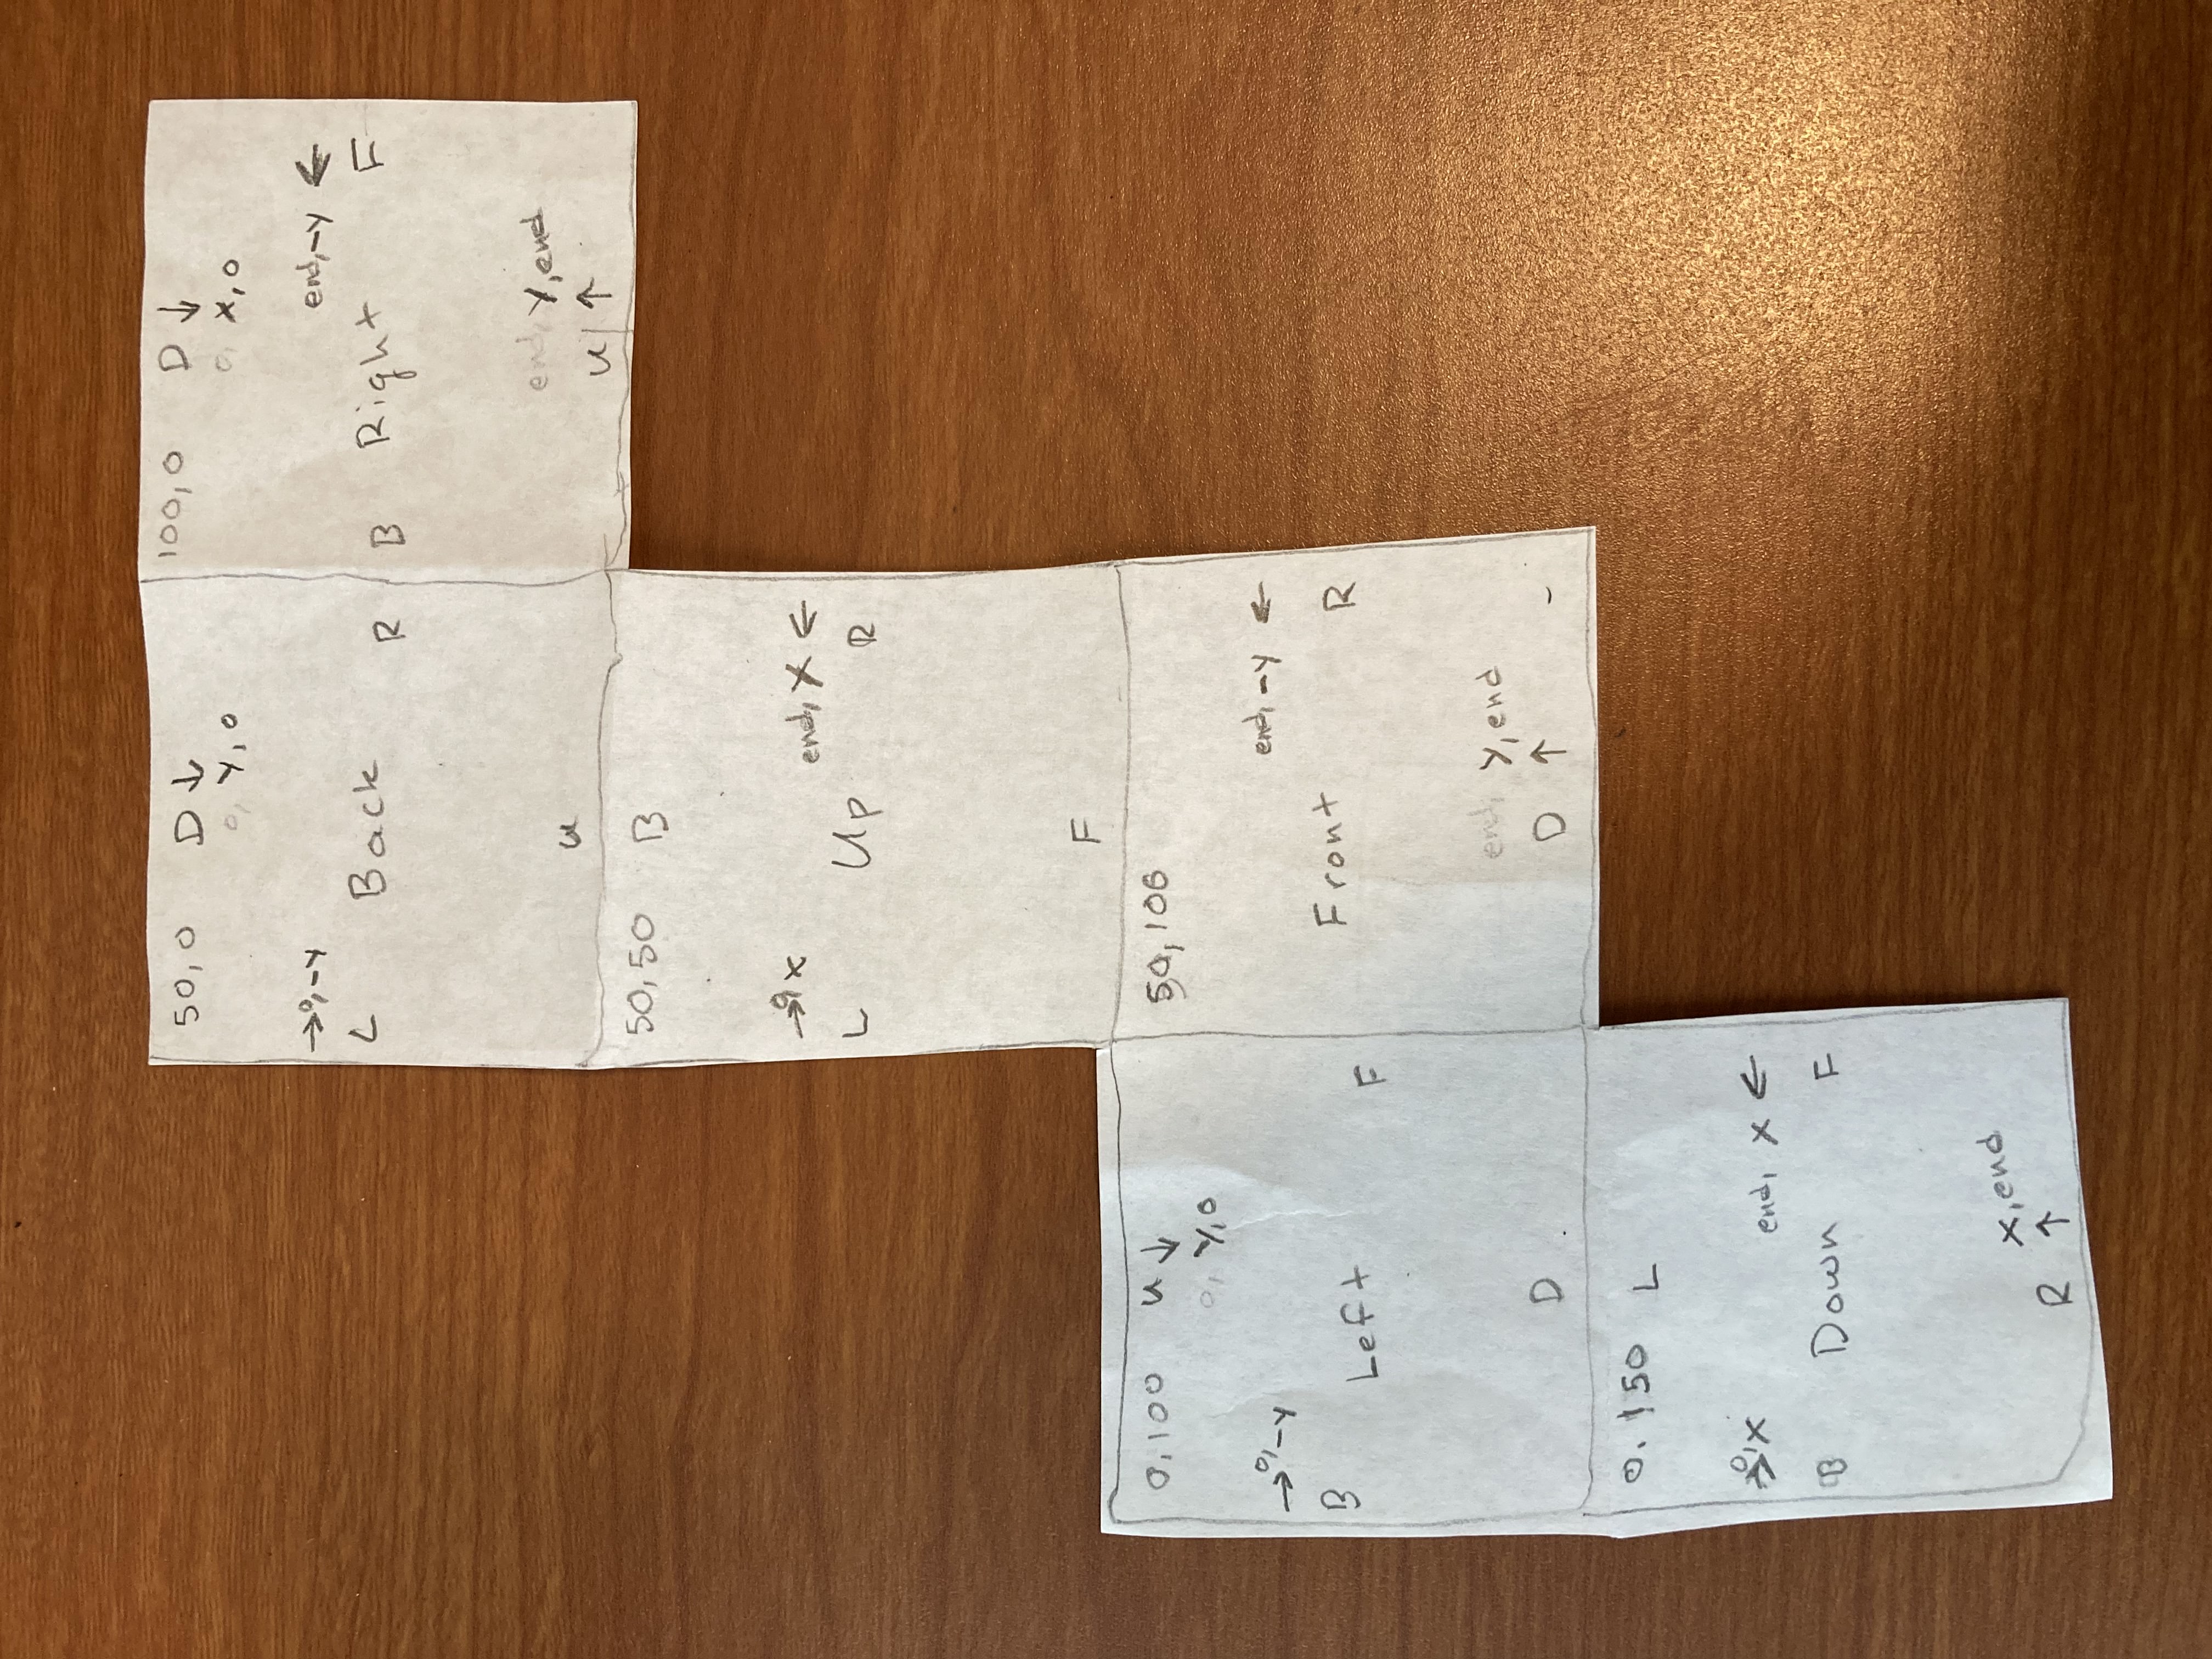 50,0 D ↓
0, Y, 0
→ 0, -Y
L Back R
U
100,0 D ↓
0, X, 0
end, -Y ←
B Right F
end, Y, end
U ↑
50,50 B
→ 0, X end, X ←
L Up R
F
0,100 U ↓
0, Y, 0
→ 0, -Y
B Left F
D
50,100
end, -Y ←
Front R
end, Y, end
D ↑
0,150 L
→ 0, X end, X ←
B Down F
X, end
R ↑